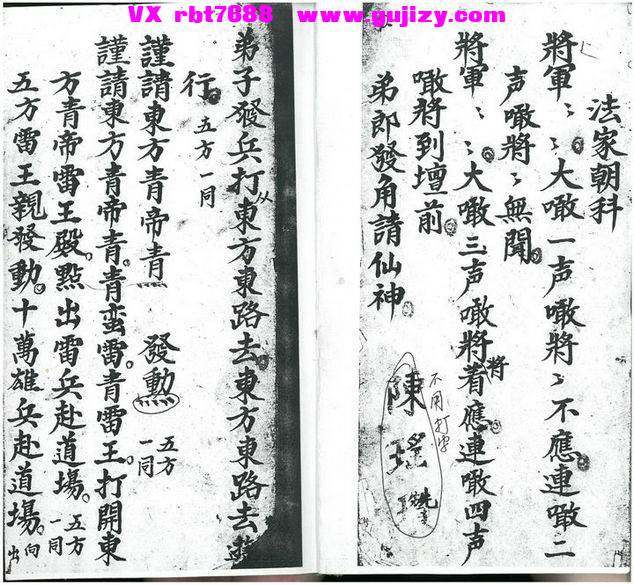 VX rbt7688 www.gujizy.com
法家朝科
將軍〻〻大噉一声噉將〻不應連噉二
声噉將〻無聞
將軍〻〻大噉三声噉將着將應連噉四声
噉將到壇前
弟郎發角請仙神
不用打字
陳瑤
弟子發兵打從東方東路去東方東路去
行 五方一同
謹請東方青帝青 發動 五方一同
謹請東方青帝青青蛮雷青雷王打開東
方青帝雷王殿點出雷兵赴道場 五方一同
五方雷王親發動十萬雄兵赴道場 向出